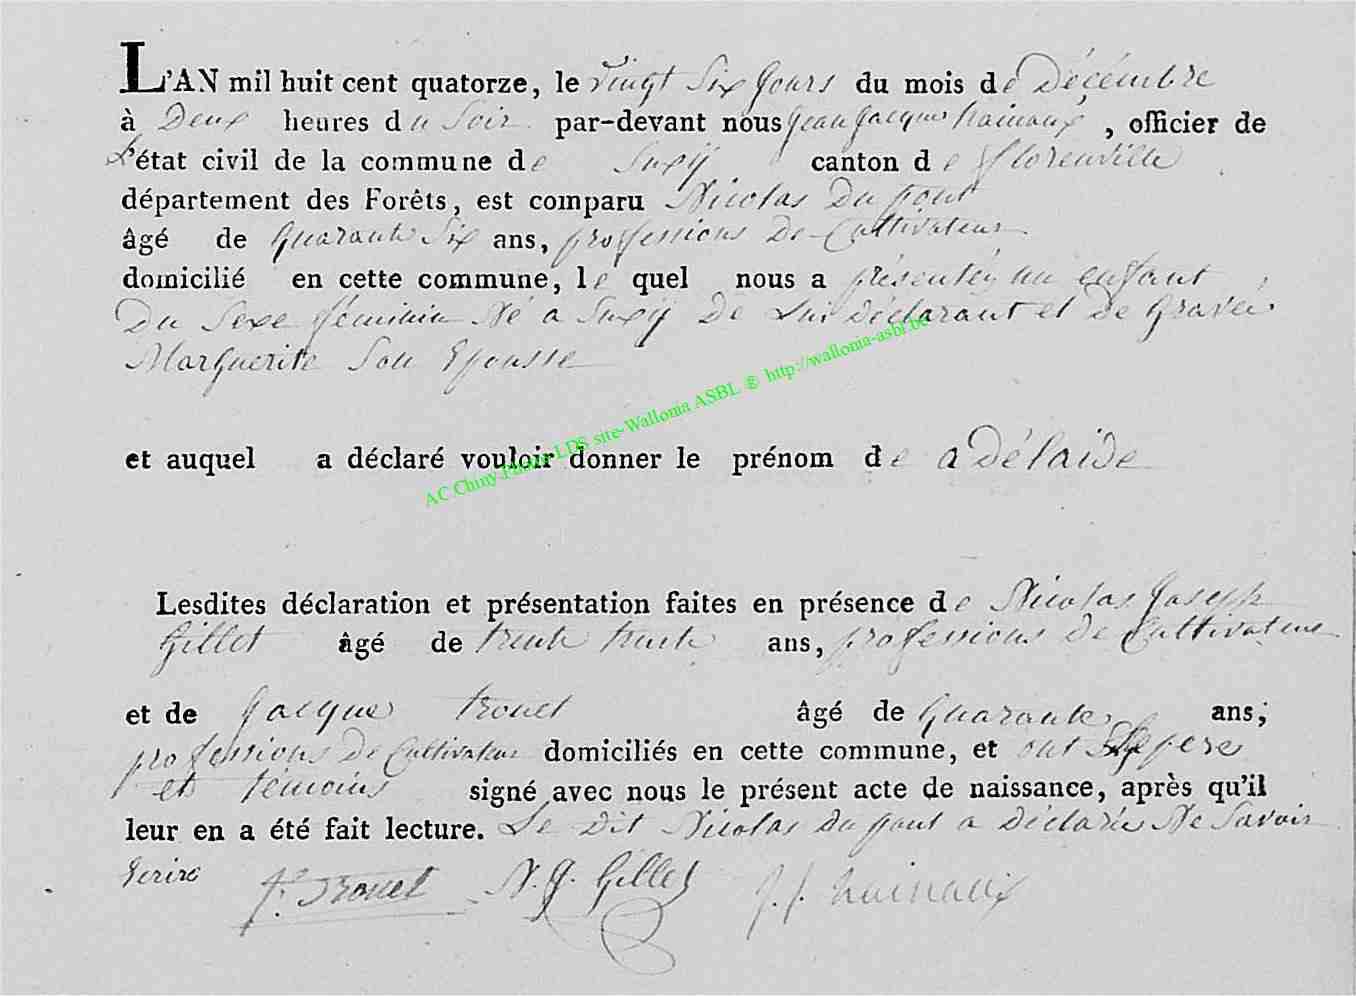 L'AN mil huit cent quatorze, le vingt six jours du mois de Décémbre
à Deux heures du Soir par-devant nous jean jacques hainaux, officier de
L'état civil de la commune de Suxÿ canton de florenville
département des Forêts, est comparu Nicolas Dupont
âgé de Quarante Six ans, professions De Cultivateur
domicilié en cette commune, le quel nous a présentéz un enfant
Du Sexe féminin Né a Suxÿ De Lui déclarant et De
Marguerite Son Epousse
et auquel a déclaré vouloir donner le prénom de adélaide
Lesdites déclaration et présentation faites en présence de Nicolas Joseph
Gillet âgé de trente ans, professions De Cultivateur
et de Jacque trouet âgé de Quarante ans;
professions De Cultivateur domiciliés en cette commune, et ont pere
et témoins signé avec nous le présent acte de naissance, après qu'il
leur en a été fait lecture. Le Dit Nicolas Dupont a Déclaréz Ne Savoir
Ecrire J. Trouet N. J. Gillet J. J. hainaux
AC Chiny-Photos LDS site-Wallonia ASBL © http://wallonia-asbl.be